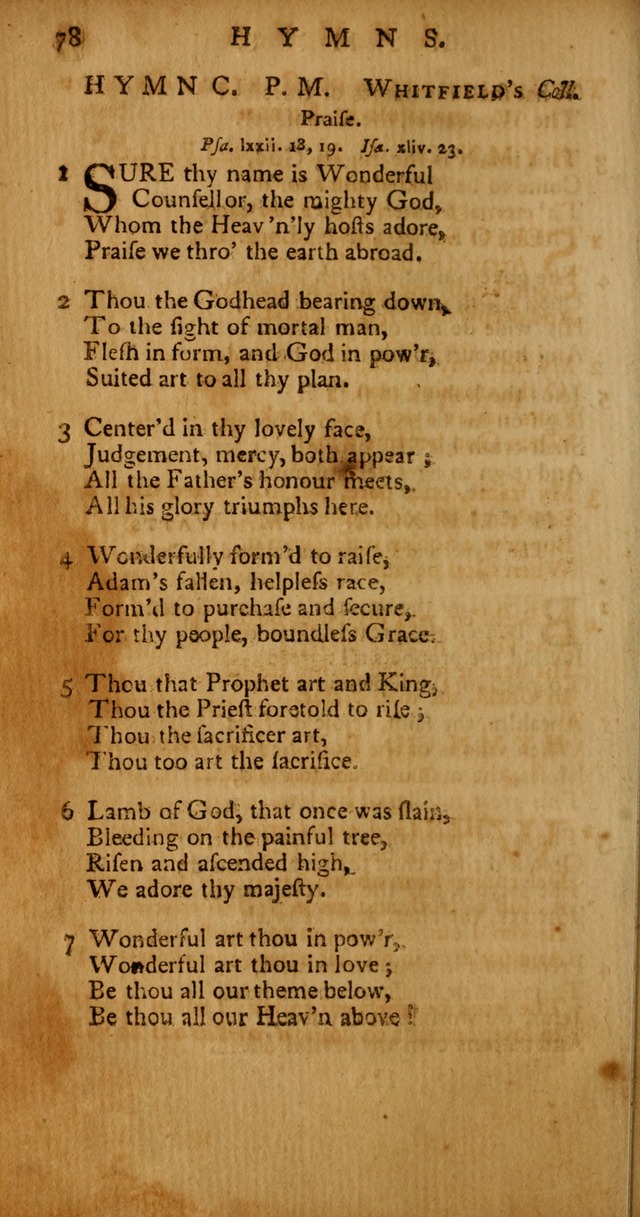 78 H Y M N S.
HYMN C. P. M. WHITFIELD's Coll.
Praiſe.
Pſa. lxxii. 18, 19. Iſa. xliv. 23.
1 SURE thy name is Wonderful
Counſellor, the mighty God,
Whom the Heav'n'ly hoſts adore,
Praiſe we thro' the earth abroad.
2 Thou the Godhead bearing down,
To the ſight of mortal man,
Fleſh in form, and God in pow'r,
Suited art to all thy plan.
3 Center'd in thy lovely face,
Judgement, mercy, both appear ;
All the Father's honour meets,
All his glory triumphs here.
4 Wonderfully form'd to raiſe,
Adam's fallen, helpleſs race,
Form'd to purchaſe and ſecure,
For thy people, boundleſs Grace.
5 Thou that Prophet art and King,
Thou the Prieſt foretold to riſe ;
Thou the ſacrificer art,
Thou too art the ſacrifice.
6 Lamb of God, that once was ſlain,
Bleeding on the painful tree,
Riſen and aſcended high,
We adore thy majeſty.
7 Wonderful art thou in pow'r,
Wonderful art thou in love ;
Be thou all our theme below,
Be thou all our Heav'n above !